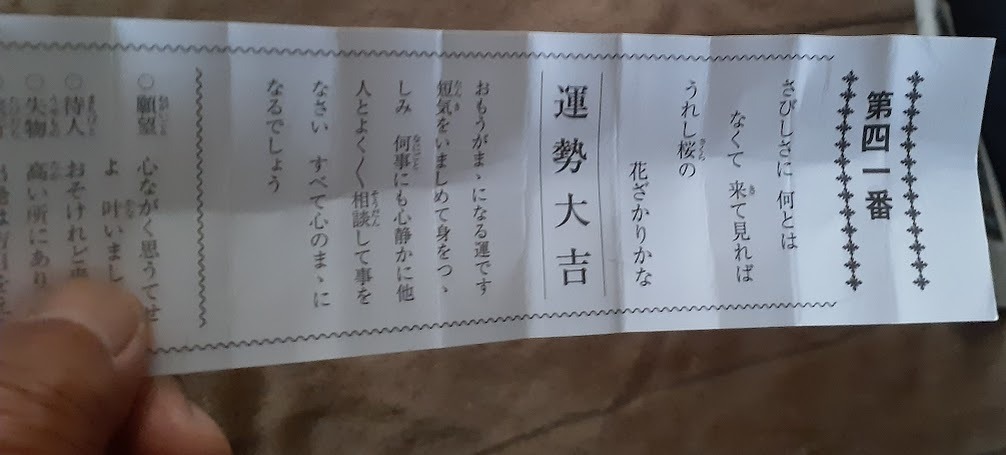 第四一番
さびしさに 何とは
なくて 来て見れば
うれし桜の
花ざかりかな
運勢大吉
おもうがまゝになる運です
短気をいましめて身をつゝ
しみ 何事にも心静かに他
人とよく〱相談して事を
なさい すべて心のまゝに
なるでしょう
○願望 心ながく思うてせ
よ 叶いまし
○待人 おそけれど
○失物 高い所にあり